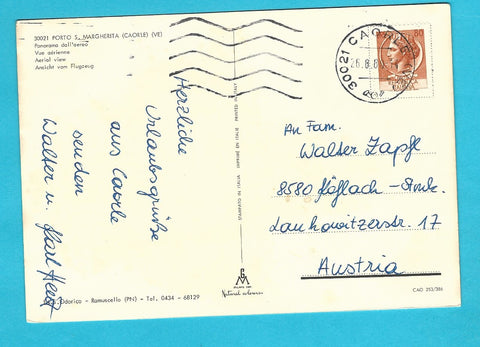 30021 PORTO S. MARGHERITA (CAORLE) (VE)
Panorama dall'aereo
Vue aérienne
Aerial view
Ansicht vom Flugzeug
Herzliche
Urlaubsgrüße
aus Caorle
senden
Walter u. Karl
Odorico - Ramuscello (PN) - Tel. 0434 - 68129
STAMPATO IN ITALIA IMPRIMÉ EN ITALIE PRINTED IN ITALY
Natural colours
30021
80
An Fam.
Walter Zapfl
8580 Köflach - Stmk.
Lankowitzerstr. 17
Austria
CAO 253/386